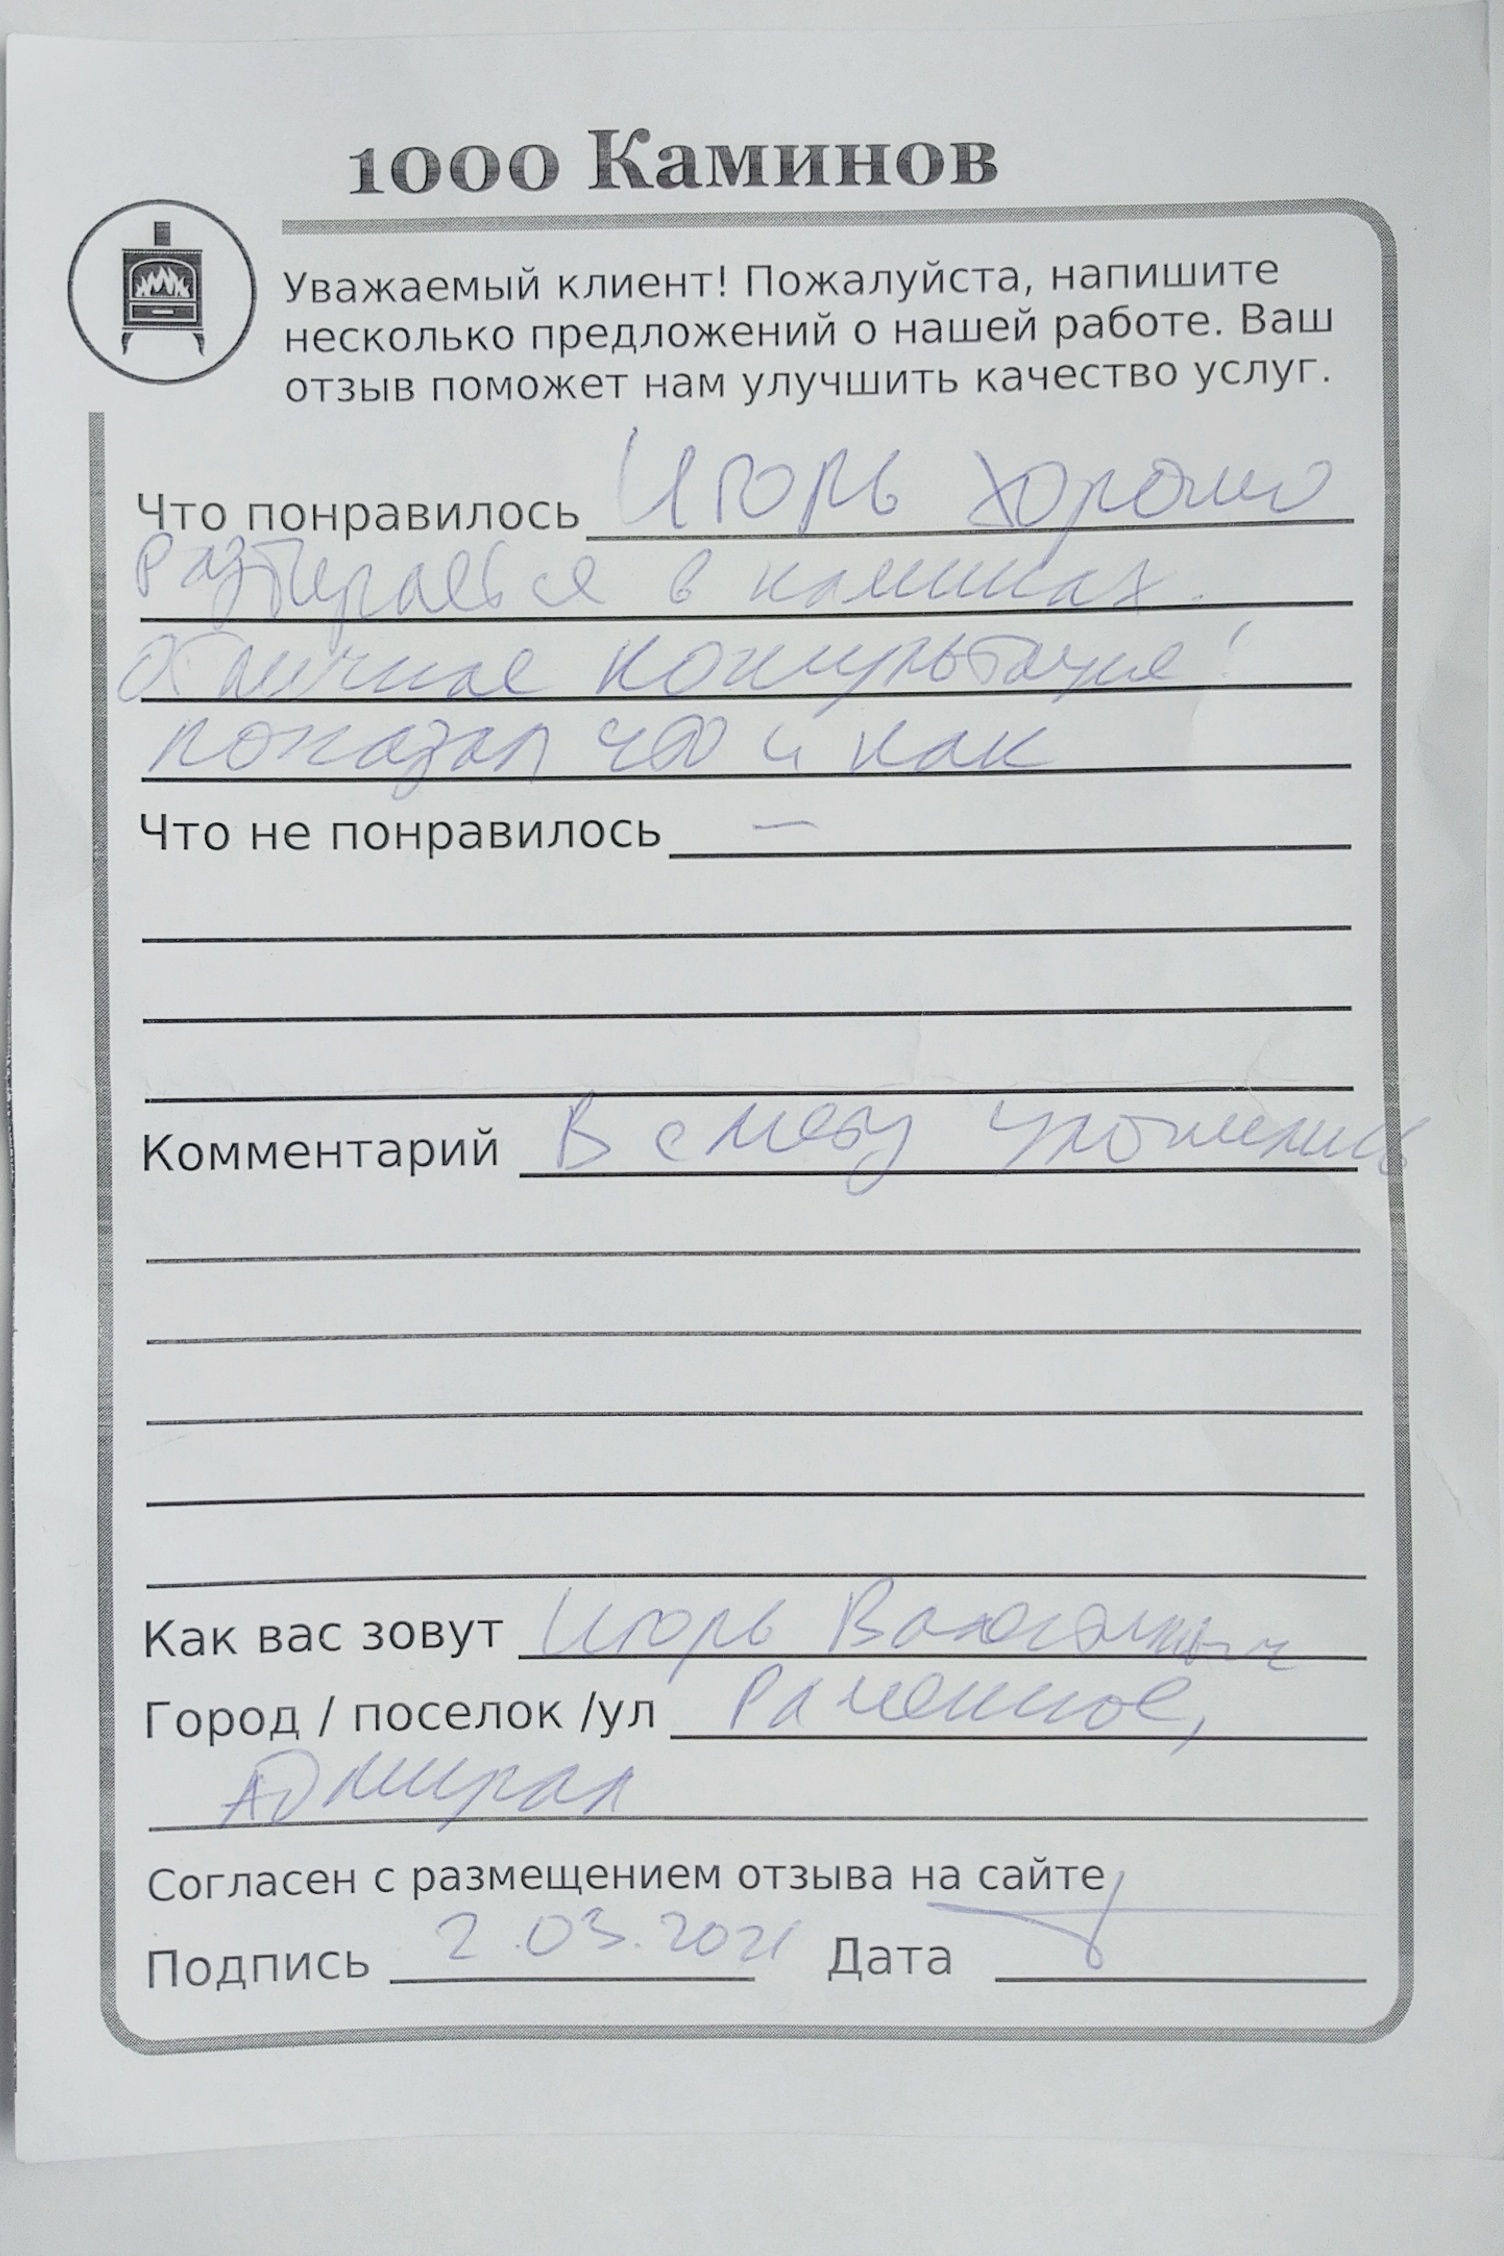 1000 Каминов
Уважаемый клиент! Пожалуйста, напишите
несколько предложений о нашей работе. Ваш
отзыв поможет нам улучшить качество услуг.
Что понравилось Игорь хорошо
разбирается в каминах.
Отличная консультация!
показал что и как
Что не понравилось —
Комментарий В смету уложились
Как вас зовут Игорь
Город / поселок /ул Раменское,
Адмирал
Согласен с размещением отзыва на сайте
Подпись 2.03.2021 Дата